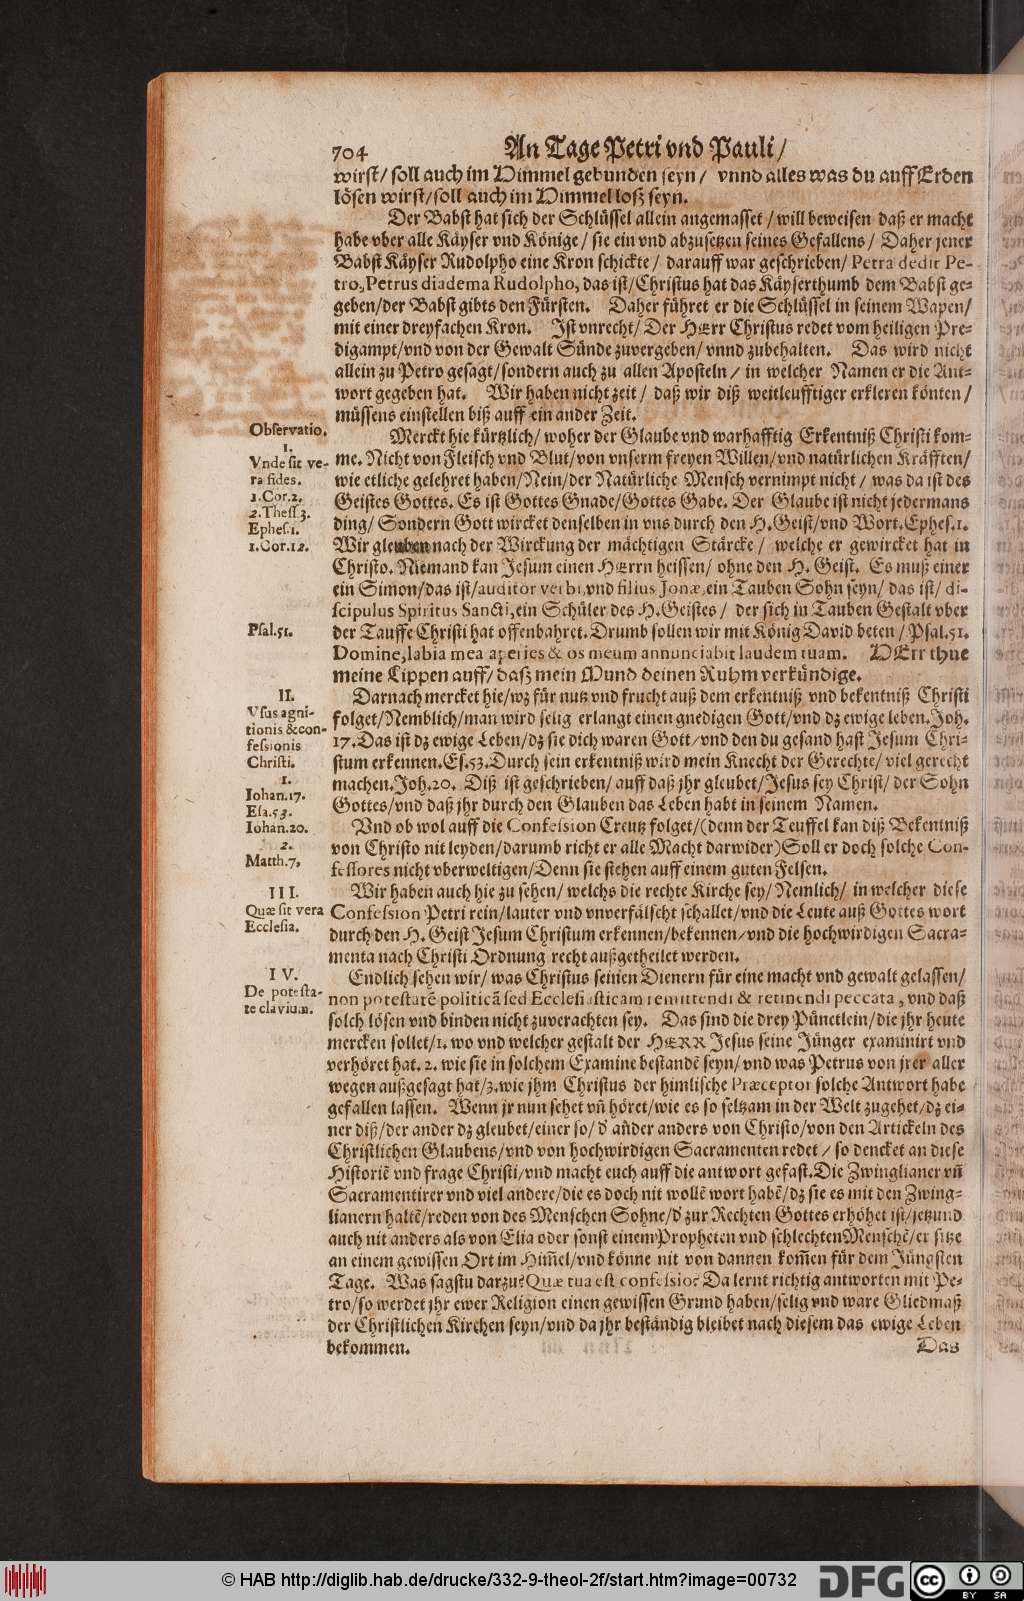 704 An Tage Petri vnd Pauli/
wirst/ soll auch im Himmel gebunden seyn/ vnnd alles was du auff Erden
lösen wirst/soll auch im Himmel loß seyn.
Der Babst hat sich der Schlüssel allein angemasset/will beweisen daß er macht
habe vber alle Käyser vnd Könige/ sie ein vnd abzusetzen seines Gefallens/ Daher jener
Babst Käyser Rudolpho eine Kron schickte/ darauff war geschrieben/ Petra dedit Pe-
tro, Petrus diadema Rudolpho, das ist/Christus hat das Käyserthumb dem Babst ge-
geben/der Babst gibts den Fürsten. Daher führet er die Schlüssel in seinem Wapen/
mit einer dreyfachen Kron. Ist vnrecht/ Der HErr Christus redet vom heiligen Pre-
digampt/vnd von der Gewalt Sünde zuvergeben/ vnnd zubehalten. Das wird nicht
allein zu Petro gesagt/sondern auch zu allen Aposteln/ in welcher Namen er die Ant-
wort gegeben hat. Wir haben nicht zeit/ daß wir diß weitleufftiger erkleren könten/
müssens einstellen biß auff ein ander Zeit.
Observatio.
1.
Vnde sit ve-
ra fides.
1.Cor.2.
2.Thess.3.
Ephes.1.
1.Cor.12.
Merckt hie kürtzlich/ woher der Glaube vnd warhafftig Erkentniß Christi kom-
me. Nicht von Fleisch vnd Blut/von vnserm freyen Willen/vnd natürlichen Kräfften/
wie etliche gelehret haben/Nein/der Natürliche Mensch vernimpt nicht/ was da ist des
Geistes Gottes. Es ist Gottes Gnade/Gottes Gabe. Der Glaube ist nicht jedermans
ding/ Sondern Gott wircket denselben in vns durch den H.Geist/vnd Wort.Ephes.1.
Wir gleuben nach der Wirckung der mächtigen Stärcke/ welche er gewircket hat in
Christo. Niemand kan Jesum einen HErrn heissen/ ohne den H. Geist. Es muß einer
ein Simon/das ist/auditor verbi,vnd filius Jonæ,ein Tauben Sohn seyn/ das ist/ di-
scipulus Spiritus Sancti,ein Schüler des H.Geistes/ der sich in Tauben Gestalt vber
Psal.51.
der Tauffe Christi hat offenbahret. Drumb sollen wir mit König David beten/ Psal.51.
Domine,labia mea aperies & os meum annunciabit laudem tuam. HErr thue
meine Lippen auff/ daß mein Mund deinen Ruhm verkündige.
II.
Vsus agni-
tionis & con-
fessionis
Christi.
1.
Iohan.17.
Esa.53.
Iohan.20.
2.
Matth.7,
Darnach mercket hie/wz für nutz vnd frucht auß dem erkentniß vnd bekentniß Christi
folget/Nemblich/man wird selig erlangt einen gnedigen Gott/vnd dz ewige leben.Joh.
17.Das ist dz ewige Leben/dz sie dich waren Gott/vnd den du gesand hast Jesum Chri-
stum erkennen.Es.53.Durch sein erkentniß wird mein Knecht der Gerechte/ viel gerecht
machen.Joh.20. Diß ist geschrieben/ auff daß jhr gleubet/Jesus sey Christ/ der Sohn
Gottes/vnd daß jhr durch den Glauben das Leben habt in seinem Namen.
Vnd ob wol auff die Confession Creutz folget/(denn der Teuffel kan diß Bekentniß
von Christo nit leyden/darumb richt er alle Macht darwider)Soll er doch solche Con-
fessores nicht vberweltigen/Denn sie stehen auff einem guten Felsen.
III.
Quæ sit vera
Ecclesia.
Wir haben auch hie zu sehen/ welchs die rechte Kirche sey/ Nemlich/ in welcher diese
Confession Petri rein/lauter vnd vnverfälscht schallet/vnd die Leute auß Gottes wort
durch den H. Geist Jesum Christum erkennen/bekennen/vnd die hochwirdigen Sacra-
menta nach Christi Ordnung recht außgetheilet werden.
IV.
De potesta-
te clavium.
Endlich sehen wir/ was Christus seinen Dienern für eine macht vnd gewalt gelassen/
non potestatē politicā sed Ecclesiasticam remittendi & retinendi peccata, vnd daß
solch lösen vnd binden nicht zuverachten sey. Das sind die drey Pünctlein/die jhr heute
mercken sollet/1. wo vnd welcher gestalt der HERR Jesus seine Jünger examinirt vnd
verhöret hat. 2. wie sie in solchem Examine bestandē seyn/ vnd was Petrus von jrer aller
wegen außgesagt hat/3.wie jhm Christus der himlische Præceptor solche Antwort habe
gefallen lassen. Wenn jr nun sehet vñ höret/wie es so seltzam in der Welt zugehet/dz ei-
ner diß/der ander dz gleubet/einer so/ d' ander anders von Christo/von den Artickeln des
Christlichen Glaubens/vnd von hochwirdigen Sacramenten redet/ so dencket an diese
Historiē vnd frage Christi/vnd macht euch auff die antwort gefast.Die Zwinglianer vñ
Sacramentirer vnd viel andere/die es doch nit wollē wort habē/dz sie es mit den Zwing-
lianern haltē/reden von des Menschen Sohne/d' zur Rechten Gottes erhöhet ist/jetzund
auch nit anders als von Elia oder sonst einem Propheten vnd schlechten Menschē/er sitze
an einem gewissen Ort im Him̄el/vnd könne nit von dannen kom̄en für dem Jüngsten
Tage. Was sagstu darzu? Quæ tua est confessio? Da lernt richtig antworten mit Pe-
tro/so werdet jhr ewer Religion einen gewissen Grund haben/selig vnd ware Gliedmaß
der Christlichen Kirchen seyn/vnd da jhr beständig bleibet nach diesem das ewige Leben
bekommen.
Das
© HAB http://diglib.hab.de/drucke/332-9-theol-2f/start.htm?image=00732
DFG
cc
BY SA